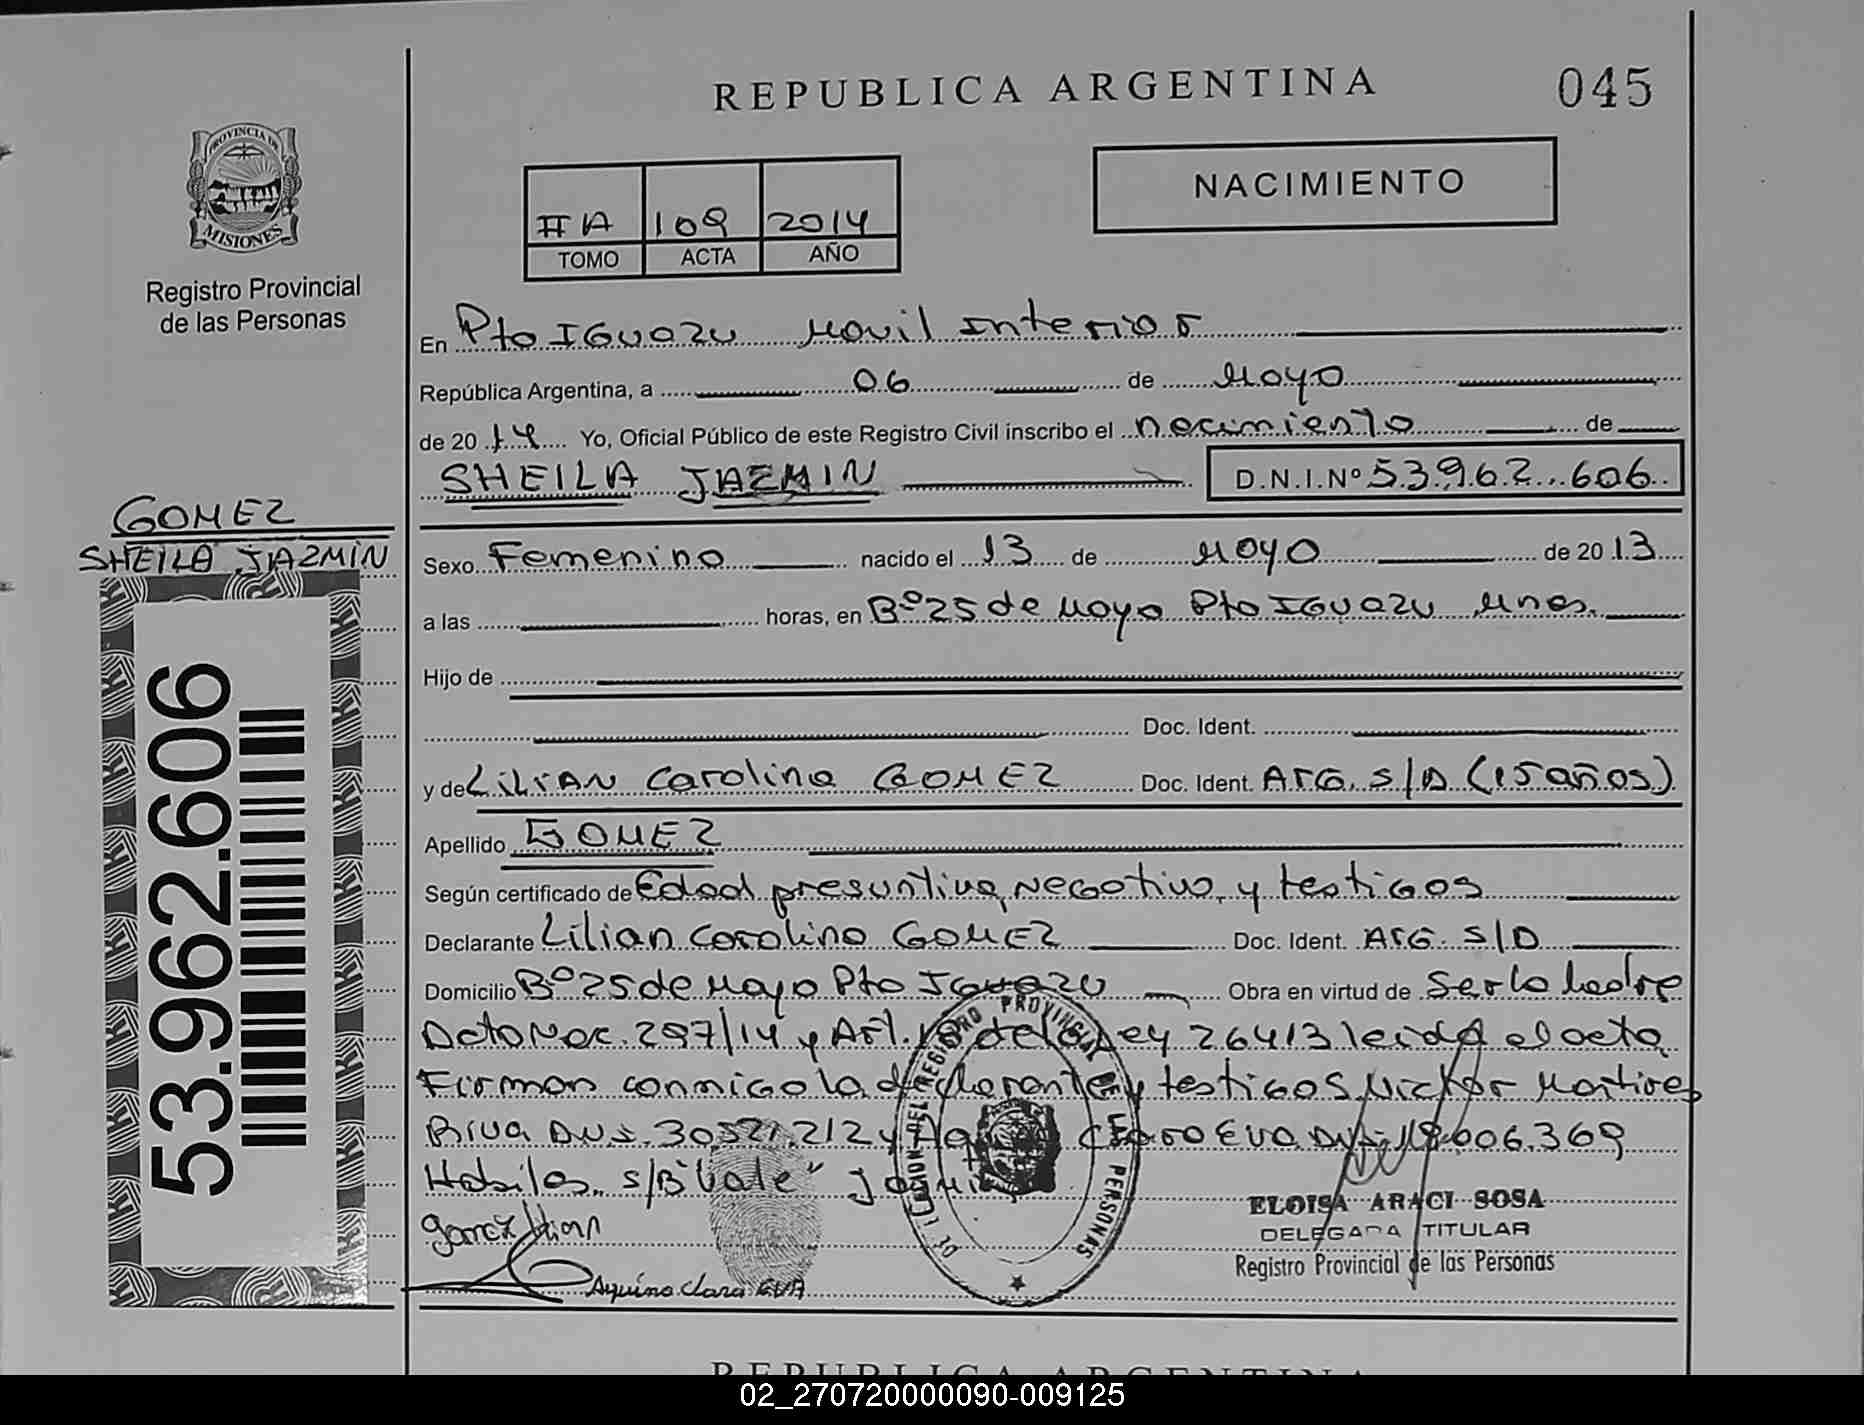 REPUBLICA ARGENTINA
045
PROVINCIA DE
MISIONES
Registro Provincial
de las Personas
NACIMIENTO
IIA 109 2014
TOMO ACTA AÑO
En Pto IGUAZU Movil Interior
República Argentina, a 06 de Mayo
de 2014 Yo, Oficial Público de este Registro Civil inscribo el nacimiento de
SHEILA JAZMIN D.N.I.Nº 53.962.606
GOMEZ
SHEILA JAZMIN
53.962.606
Sexo Femenino nacido el 13 de Mayo de 2013
a las horas, en Bº 25 de Mayo Pto IGUAZU Mnes.
Hijo de
Doc. Ident.
y de LILIAN Carolina GOMEZ Doc. Ident. ARG. S/D (15 años)
Apellido GOMEZ
Según certificado de Edad presuntiva, Negativo, y testigos
Declarante Lilian Carolina GOMEZ Doc. Ident. ARG. S/D
Domicilio Bº 25 de Mayo Pto IGUAZU Obra en virtud de Ser la Madre
297/14 y Art. de la Ley 26413 leida el acta
Firman conmigo la declarante y testigos Victor
DNI. 212 y Clara Eva DNI. 18.006.369
Habiles. s/B "Vale"
Aquino Clara EVA
REGISTRO PROVINCIAL DE LAS PERSONAS
ELOISA ARACI SOSA
DELEGADA TITULAR
Registro Provincial de las Personas
REPUBLICA ARGENTINA
02_270720000090-009125